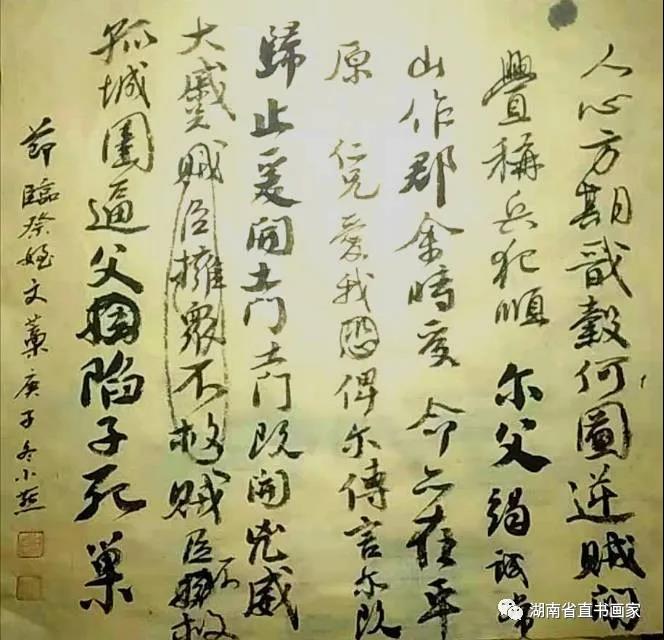 人心方期戩穀何圖逆賊閒
釁稱兵犯順尔父竭誠常
山作郡余時受命亦在平
原仁兄愛我恐俾尔傳言尔既
歸止爰開土門土門既開兇威
大蹙賊臣擁眾不救賊臣不救
孤城圍逼父陷子死巢
節臨祭姪文藁庚子冬小
湖南省直书画家